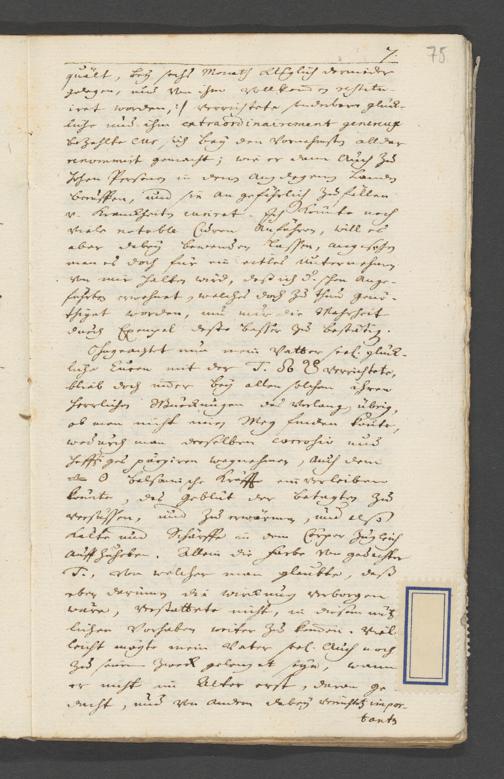 7. 75
quält, bey sechs Monath kläglich darnieder
gelegen, und von ihm vollkommen restitu-
iret worden, :/ verrichtete sonderbare glück-
liche und ihm extraordinairement genereux
bezahlte cur, sich bey den Vornehmsten all der
renommirt gemacht; wie er dann auch zu
hohen Persohnen in denen angelegenen Landen
beruffen, und sie an gefährlich Zufällen
u. Kranckheiten curiret. Ich könnte noch
viele notable Curen anführen, will es
aber dabey bewenden lassen, angesehen
man es doch für ein eitles unternehmen
von mir halten wird, daß ich d. schon ange-
führte erwehnet, welches doch zu thun genö-
thiget worden, um nur die Wahrheit
durch Exempel desto besser zu bestätig.
Ohngeachtet nun mein Vatter seel. glück-
liche Curen mit der T. verrichtete,
blieb doch immer bey allen solchen ihren
herrlichen Würckungen das Verlangen übrig,
ob man nicht einen Weg finden könte,
wodurch man derselben corrosiv und
hefftiges purgiren wegnehmen, auch dem
balsamische Kräffte einverleiben
könte, das geblüt der betagten zu
versüssen, und zu erwärmen, und also
Kälte und Schärffe in dem Cörper zugleich
auffzuheben. Allein die farbe von gedachter
T., von welcher man glaubte, daß
eben darinnen die würckung verborgen
wäre, verstattete nicht, in diesem nütz-
lichen Vorhaben weiter zu kommen. Viel-
leicht mögte mein Vater seel. auch noch
zu seinem Zweck gelanget seyn, wann
er nicht im Alter erst, daran ge
dacht, und von andern dabey impor-
tante